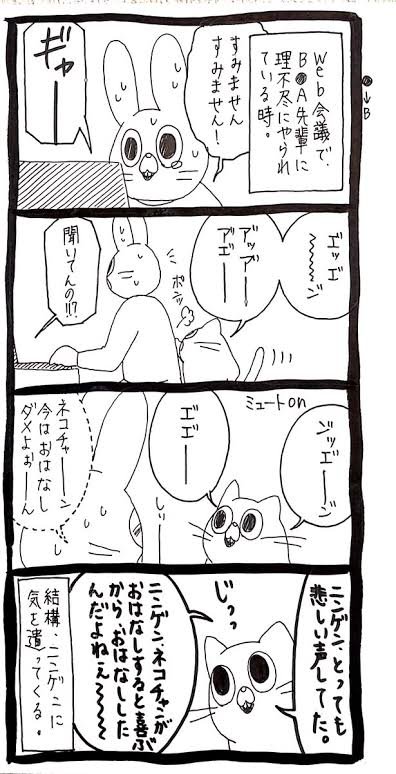 ●→B
Web会議で、
B●A先輩に
理不尽にやられ
ている時。
すみません
すみません!
ギャーー
エッエ〜〜〜ジ
アッアー
アエーー
ポンッ
聞いてんの!!?
ジッエーーン
ミュートon
エエーー
しぃーっ
ネコチャーーン
今はおはなし
ダメよぉーーん
ニンゲン、とっても
悲しい声してた。
じっっ
ニンゲン、ネコチャンが
おはなしすると喜ぶ
から、おはなしした
んだよねぇ〜〜〜
結構、ニンゲンに
気を遣ってくる。